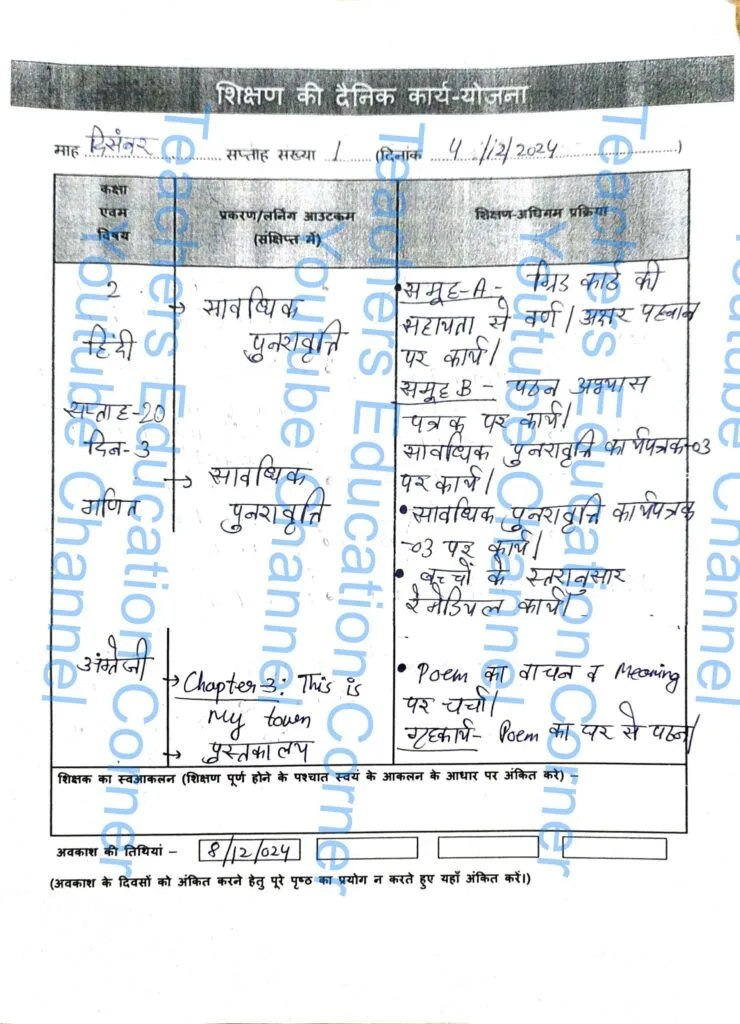 शिक्षण की दैनिक कार्य-योजना
माह दिसंबर सप्ताह सख्या 1 (दिनांक 4/12/2024)
कक्षा
एवम
विषय
प्रकरण/लर्निग आउटकम
(संक्षिप्त में)
शिक्षण-अधिगम प्रक्रिया
2
हिंदी
सप्ताह-20
दिन-3
→ सावधिक
पुनरावृत्ति
• समूह-A - ग्रिड कार्ड की
सहायता से वर्ण/अक्षर पहचान
पर कार्य।
समूह B - पठन अभ्यास
पत्रक पर कार्य।
सावधिक पुनरावृत्ति कार्यपत्रक-03
पर कार्य।
गणित
→ सावधिक
पुनरावृत्ति
• सावधिक पुनरावृत्ति कार्यपत्रक
-03 पर कार्य।
• बच्चों के स्तरानुसार
रेमेडियल कार्य।
अंग्रेजी
→ Chapter-3: This is
My town
→ पुस्तकालय
• Poem का वाचन व Meaning
पर चर्चा।
गृहकार्य- Poem का घर से पठन।
शिक्षक का स्वआकलन (शिक्षण पूर्ण होने के पश्चात स्वयं के आकलन के आधार पर अंकित करे) –
अवकाश की तिथियां – 8/12/024
(अवकाश के दिवसों को अंकित करने हेतु पूरे पृष्ठ का प्रयोग न करते हुए यहाँ अंकित करें।)
Teachers Education Corner
Youtube Channel
Teachers Education Corner
Youtube Channel
Teachers Education Corner
Youtube Channel